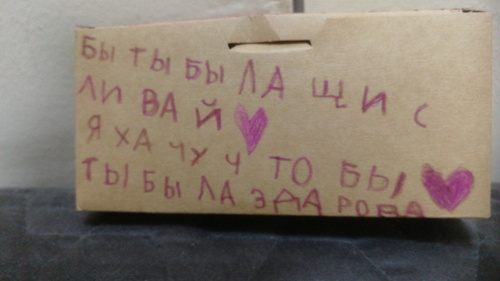 БЫ ТЫ БЫ ЛА ЩИ С
ЛИ ВАЙ
Я ХА ЧУ Ч ТО БЫ
ТЫ БЫ ЛА ЗДА РОВА